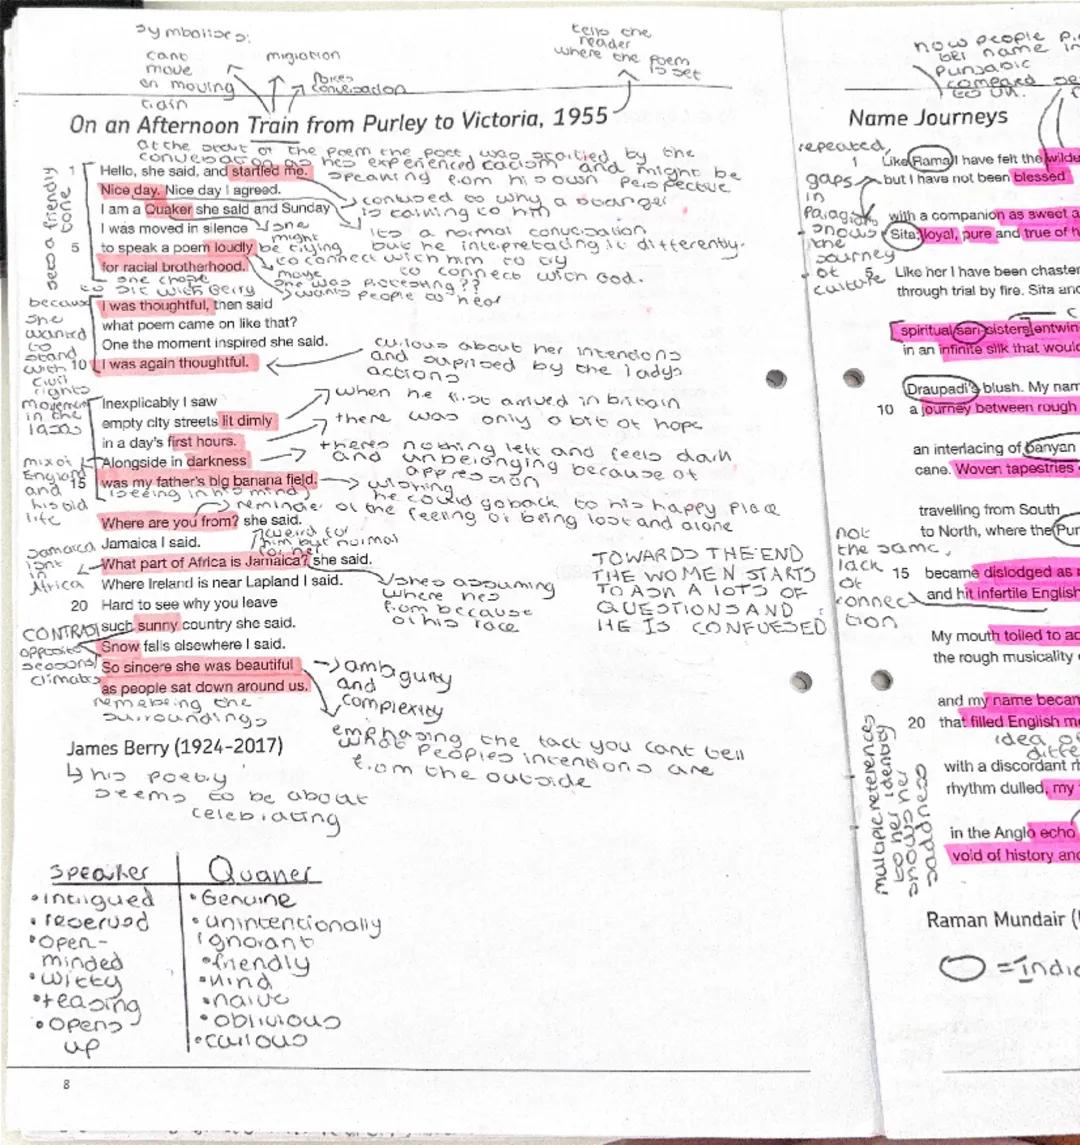 symbolises:
cant
move
on moving
train
migration
forces
conversation
tells the
reader
where the poem
is set
On an Afternoon Train from Purley to Victoria, 1955
at the start of the poem the poet was startled by the
conversation as hes experienced racism and might be
speaking from his own perspective
sets a friendly
tone
1 Hello, she said, and startled me.
Nice day. Nice day I agreed.
confused to why a stranger
is talking to him
I am a Quaker she said and Sunday
I was moved in silence
its a normal conversation
but he interpretating it differently.
she
might
be trying
to connect with him to try
to connect with God.
5 to speak a poem loudly
for racial brotherhood.
maybe
she was protesting??
wants people to hear
she chose
to sit with Berry
because
she
wanted
to
stand
with
civil
rights
movement
in the
1950s
I was thoughtful, then said
what poem came on like that?
One the moment inspired she said.
10 I was again thoughtful.
curious about her intentions
and suprised by the ladys
actions
Inexplicably I saw
empty city streets lit dimly
in a day's first hours.
Alongside in darkness
15 was my father's big banana field.
when he first arrived in britain
there was only a bit of hope
theres nothing left and feels dark
and unbelonging because of
oppression
wishing
he could go back to his happy place
mix of
England
and
his old
life
(seeing in his mind)
reminder of the feeling of being lost and alone
Where are you from? she said.
Jamaica I said.
weird for
him but normal
for her
What part of Africa is Jamaica? she said.
Where Ireland is near Lapland I said.
20 Hard to see why you leave
such sunny country she said.
Snow falls elsewhere I said.
So sincere she was beautiful
as people sat down around us.
Jamaica
isnt
in
Africa
shes assuming
where hes
from because
of his race
TOWARDS THE END
THE WOMEN STARTS
TO ASK A LOTS OF
QUESTIONS AND
HE IS CONFUESED
CONTRAST
opposite
seasons/
climates
ambiguity
and
complexity
remebering the
surroundings
emphasing the fact you cant tell
what peoples intentions are
from the outside
James Berry (1924-2017)
his poetry
seems to be about
celebrating
Speaker
• intrigued
• reserved
• open-
minded
• witty
• teasing
• opens
up
Quaker
• Genuine
• unintentionally
ignorant
• friendly
• kind
• naive
• oblivious
• curious
8
how people
name in
Punjabic
compared
to UK.
Name Journeys
repeated,
gaps
in
paragraphs
shows
the
journey
of
culture
1 Like Rama I have felt the wilde
but I have not been blessed
with a companion as sweet a
Sita; loyal, pure and true of h
5 Like her I have been chasten
through trial by fire. Sita and
spiritual sari-sisters entwin
in an infinite silk that would
Draupadi's blush. My nam
10 a journey between rough
an interlacing of banyan
cane. Woven tapestries
travelling from South
to North, where the Pun
not
the same,
lack
of
connection
15 became dislodged as
and hit infertile English
My mouth toiled to ac
the rough musicality
and my name becam
20 that filled English m
idea of
with a discordant rh
rhythm dulled, my
in the Anglo echo
void of history and
multiple references
to her identity
shows her
saddness
Raman Mundair (
= Indi